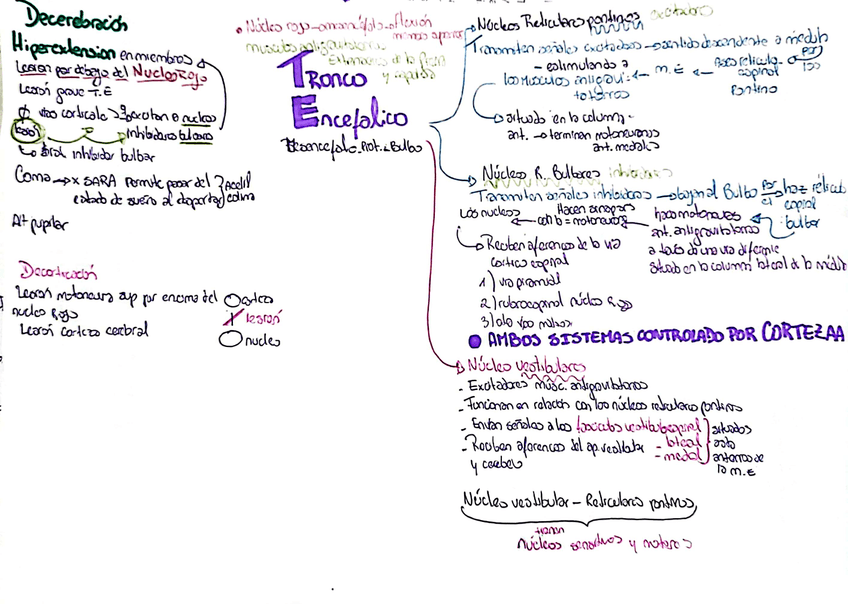 Decerebración
Hiperextension en miembros
Lesión por debajo del Nucleo Rojo
Lesión grave T.E
vías corticals
nucleos
Lesión
Inhibidores bulbares
inhibidor bulbar
Coma → x SARA permite pasar del
estado de sueño al despertar
Acetil
colina
Alt pupilar
Decorticación
Lesión motoneurona sup por encima del
nucleo Rojo
Lesión corteza cerebral
corteza
lesión
nucleo
Núcleo rojo - mesencéfalo - flexión
miembros superiores
músculos antigravitatorios
Tronco
Encefalico
Mesencefalo - Prot. - Bulbo
Núcleos Reticulares pontinos excitadores
Transmiten señales excitadoras → sentido descendente a medula
por
- estimulando a
los músculos antigravi-
tatorios
← M.E ←
Fasc reticulo-
espinal
Pontino
situado en la columna
ant. → terminan motoneuronas
ant. mediales
Núcleo R. Bulbares inhibidores
Transmiten señales inhibidoras → bajan al Bulbo
Por
el
haz retículo
espinal
bulbar
Los nucleos
Hacen sinapsis
con = motoneuronas
hacia motoneuronas
ant. antigravitatorios
a través de una via diferente
situado en la columna lateral de la médula
Reciben aferencias de la via
cortico espinal
1) via piramidal
2) rubroespinal núcleo Rojo
3) otras vias motoras
AMBOS SISTEMAS CONTROLADO POR CORTEZAA
Núcleo vestibulares
- Excitadores musc. antigravitatorios
- Funcionan en relación con los núcleos reticulares pontinos
- Envian señales a los fasciculos vestibuloespinal
- lateral
- medial
situados
asta
anteriores de
la M.E
- Reciben aferencias del ap. vestibular
y cerebelo
Núcleo vestibular - Reticulares pontinos
tienen
núcleos sensitivos y motores